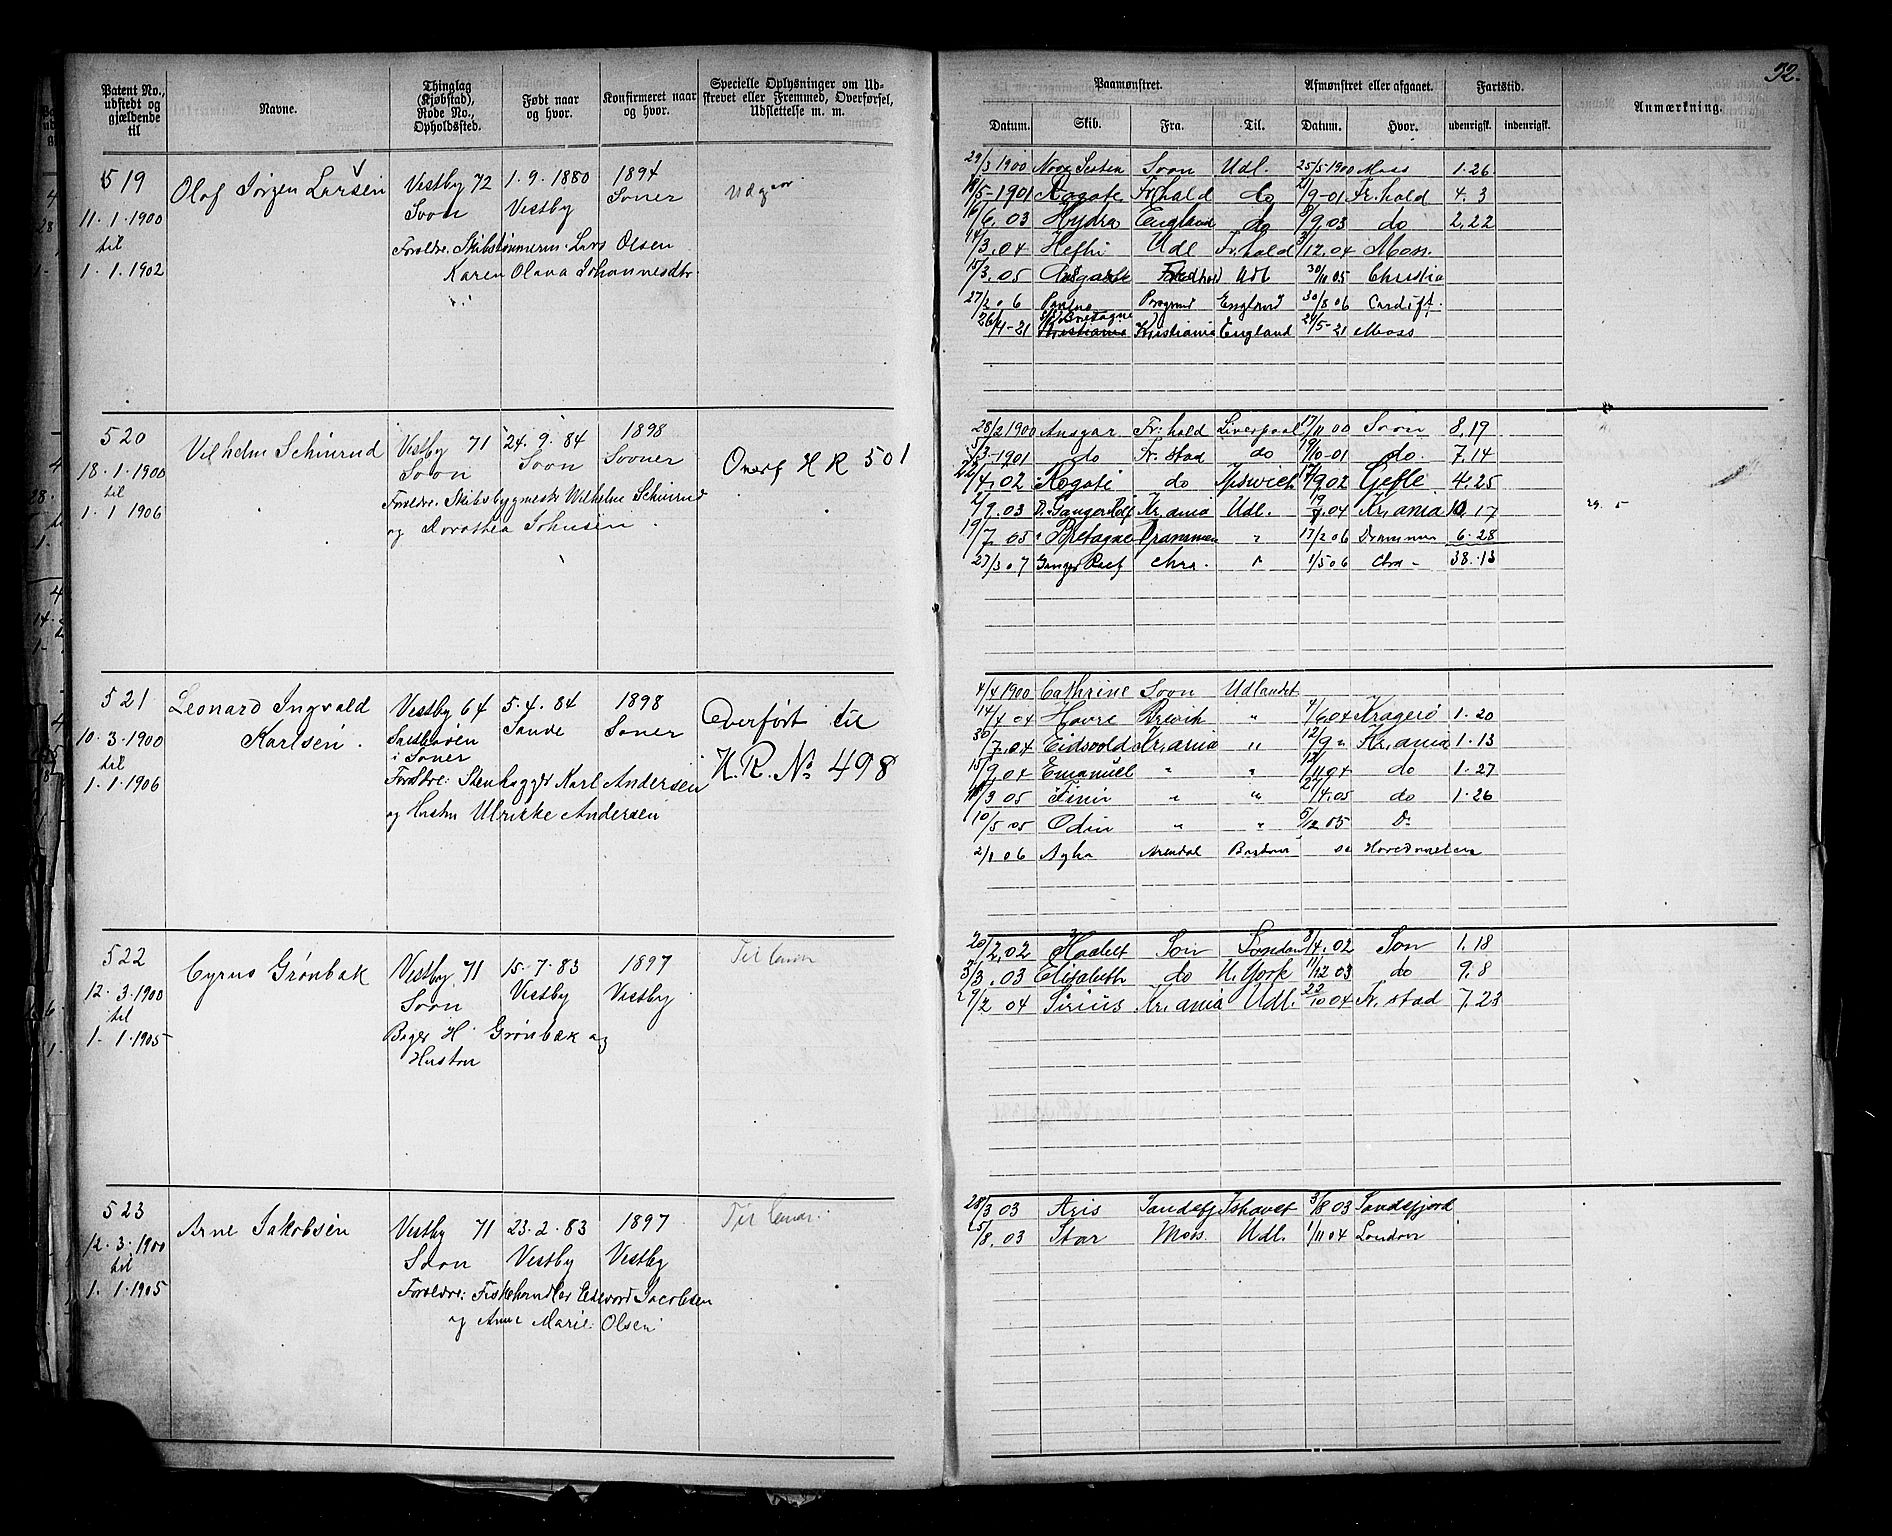 52.
Patent No., udstedt og gjældende til
Navne.
Thinglag (Kjøbstad), Rode No., Opholdssted.
Født naar og hvor.
Konfirmeret naar og hvor.
Specielle Oplysninger om Udstrevet eller Fremmed, Overførsel, Udslettelse m. m.
Paamønstret.
Afmønstret eller afgaaet.
Fartstid.
Anmærkning.
Datum. Skib. Fra. Til. Datum. Hvor. udenrigsk. indenrigsk.
519
11. 1. 1900
til
1. 1. 1902
Olaf Jørgen Larsen
Vestby 72
Soon
1. 9. 1880
Vestby
1894
Soner
Udgaar
Forældre: Skibstømmerm. Lars Olsen
Karen Olava Johannesdtr.
29/3 1900 Soon Udl. 25/5 1900 Moss 1. 26
18/5-1901 Rogate Fr.hald do /9-01 Fr. hald 4. 3
16/6. 03 Hydra England do /9. 03 do 2, 22
14/3. 04 Udl Fr. hald /12. 04 Moss.
15/3. 05 Fredhald Udl 30/11 05 Christia
27/2 06 England 30/8 06 Cardiff.
26/4-21 Bretagne Kristiania England 24/5-21 Moss
520
18. 1. 1900
til
1. 1. 1906
Vilhelm Schinrud
Vestby 71
Soon
24. 9. 84
Soon
1898
Sooner
Overf H R 501
Forældre: Skibsbygmester Wilhelm Schinrud
og Dorothea Johnsen
28/2 1900 Ansgar Fr. hald Liverpool 17/11 00 Soon 8, 19
5/3-1901 do Fr. stad do 19/10-01 do. 7. 14
22/4. 02 Rogate do Ipswich 17/9. 02 Gefle 4. 25
2/9. 03 D. Ganger Rolf Kr, ania Udl. 19/7. 04 Kr, ania 10. 17
29. 5
19/7. 05 " Bretagne Drammen " 17/2 06 Drammen 6. 28
23/3 07 Ganger Rolf Chra. " 1/5 06 Chra - 38. 13
521
10. 3. 1900
til
1. 1. 1906
Leonard Ingvald
Karlsen.
Vestby 64
i Soner
5. 4. 84
Sande
1898
Soner
Overført til
H. R. No 498
Forældre: Stenhugger Karl Andersen
og Hustru Ulrikke Andersen
4/4 1900 Cathrine Soon Udlandet
14/4 04 Havre Brevik " 4/6 04 Kragerø 1. 20
30/7. 04 Eidsvold Kr, ania " 12/9 " Kr, ania 1. 13
15/9. 04 Emanuel " " 12/11 04 do 1. 27
/3 05 " " 27/4. 05 do 1. 26
10/5 05 Odin " " 5/12 05 Do
2/1 06 Arendal
522
12. 3. 1900
til
1. 1. 1905
Cyrus Grønbak
Vestby 71
Soon
15. 7. 83
Vestby
1897
Vestby
Bager H. Grønbæk og
Hustru
20/2, 02 Son London 8/4. 02 Son 1. 18
3/3. 03 Elisabeth do N. York 11/12 03 do 9. 8
29/2 04 Sirius Kr. ania Udl. 22/10 04 Fr. stad 7. 23
523
12. 3. 1900
til
1. 1. 1905
Arne Jakobsen
Vestby 71
Soon
23. 2. 83
Vestby
1897
Vestby
Forældre: Fiskehandler Edvard Jacobsen
og Anne Marie Olsen
28/3 03 Aris Sandefj Ishavet 3/8 03 Sandefjord
25/8. 03 Star Moss. Udl. 1/11 04 London